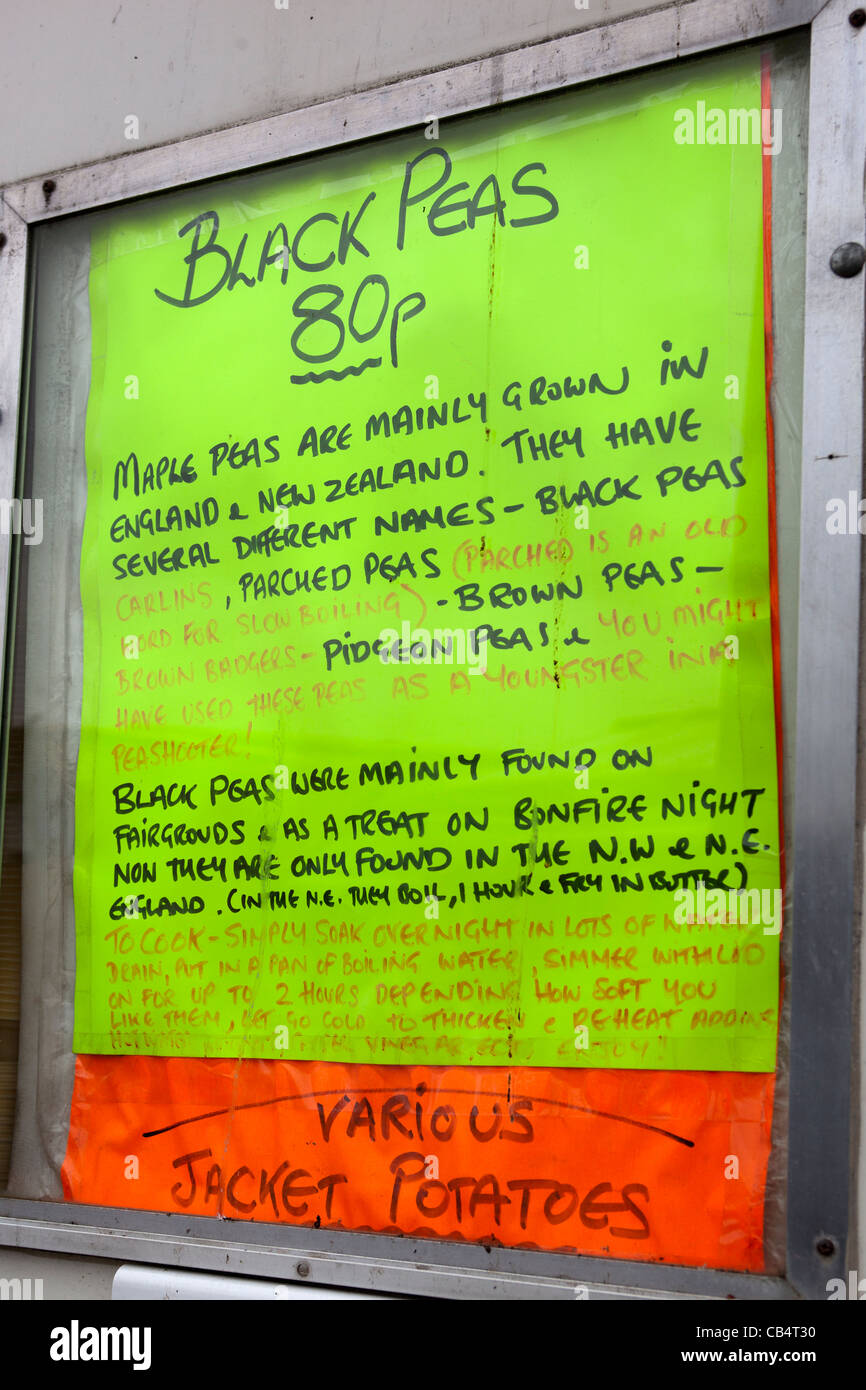 BLACK PEAS
80p
MAPLE PEAS ARE MAINLY GROWN IN
ENGLAND & NEW ZEALAND. THEY HAVE
SEVERAL DIFFERENT NAMES - BLACK PEAS
CARLINS, PARCHED PEAS (PARCHED IS AN OLD
WORD FOR SLOW BOILING) - BROWN PEAS -
BROWN BADGERS - PIDGEON PEAS & YOU MIGHT
HAVE USED THESE PEAS AS A YOUNGSTER IN A
PEASHOOTER!
BLACK PEAS WERE MAINLY FOUND ON
FAIRGROUDS & AS A TREAT ON BONFIRE NIGHT
NON THEY ARE ONLY FOUND IN THE N.W & N.E.
ENGLAND. (IN THE N.E. THEY BOIL, 1 HOUR & FRY IN BUTTER)
TO COOK - SIMPLY SOAK OVERNIGHT IN LOTS OF WATER
DRAIN, PUT IN A PAN OF BOILING WATER, SIMMER WITH LID
ON FOR UP TO 2 HOURS DEPENDING HOW SOFT YOU
LIKE THEM, LET GO COLD TO THICKEN & REHEAT ADDING
VINEGAR ENJOY!
VARIOUS
JACKET POTATOES
alamy
Image ID: CB4T30
www.alamy.com